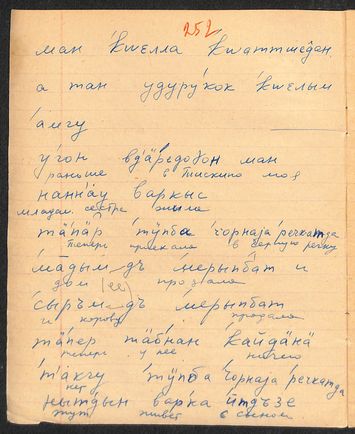 252
ман кшелла кшаттшедан.
а тан удуру́кок кшелым
а́мгу
у́гон вдӓредоҕон ман
раньше в Тискино моя
наннӓу варкыс
младш. сестра жила
тӓпӓр тӱпба чорнаjа речкатда
теперь приехала в Черную речку
мӓдым дъ мерыпбат и
дом (ее) продала
сыръм дъ мерыпбат
и корову продала
тӓпер тӓбнан кайдӓнӓ
теперь у нее ничего
тӓкгу тӱпба чорнаjа речкатда
нет
нытдын варка ӣтдъзе
тут живет с сыном